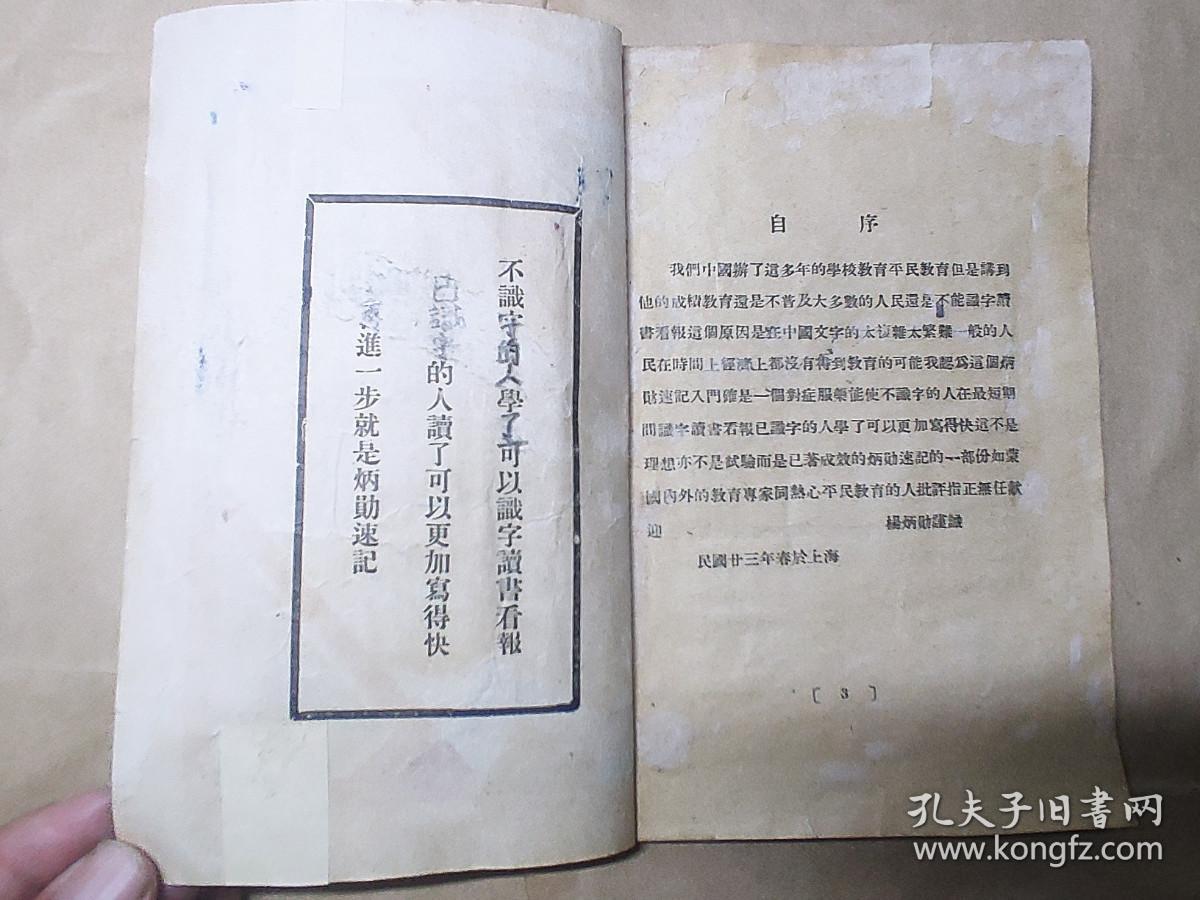 不識字的人學了可以識字讀書看報
已識字的人讀了可以更加寫得快
再進一步就是炳勛速記
自序
我們中國辦了這多年的學校敎育平民敎育但是講到
他的成績敎育還是不普及大多數的人民還是不能識字讀
書看報這個原因是在中國文字的太複雜太繁難一般的人
民在時間上經濟上都沒有得到敎育的可能我認爲這個炳
勛速記入門確是一個對症服藥能使不識字的人在最短期
間識字讀書看報已識字的人學了可以更加寫得快這不是
理想亦不是試驗而是已著成效的炳勛速記的一部份如蒙
國內外的敎育專家同熱心平民敎育的人批評指正無任歡
迎
楊炳勛謹識
民國廿三年春於上海
〔3〕
孔夫子旧书网
www.kongfz.com